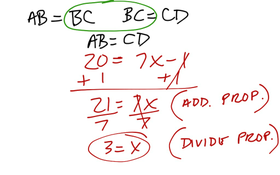 AB = BC BC = CD
AB = CD
20 = 7x - 1
+ 1 + 1
21 = 7x (ADD. PROP.)
7 7
3 = x (DIVIDE PROP.)